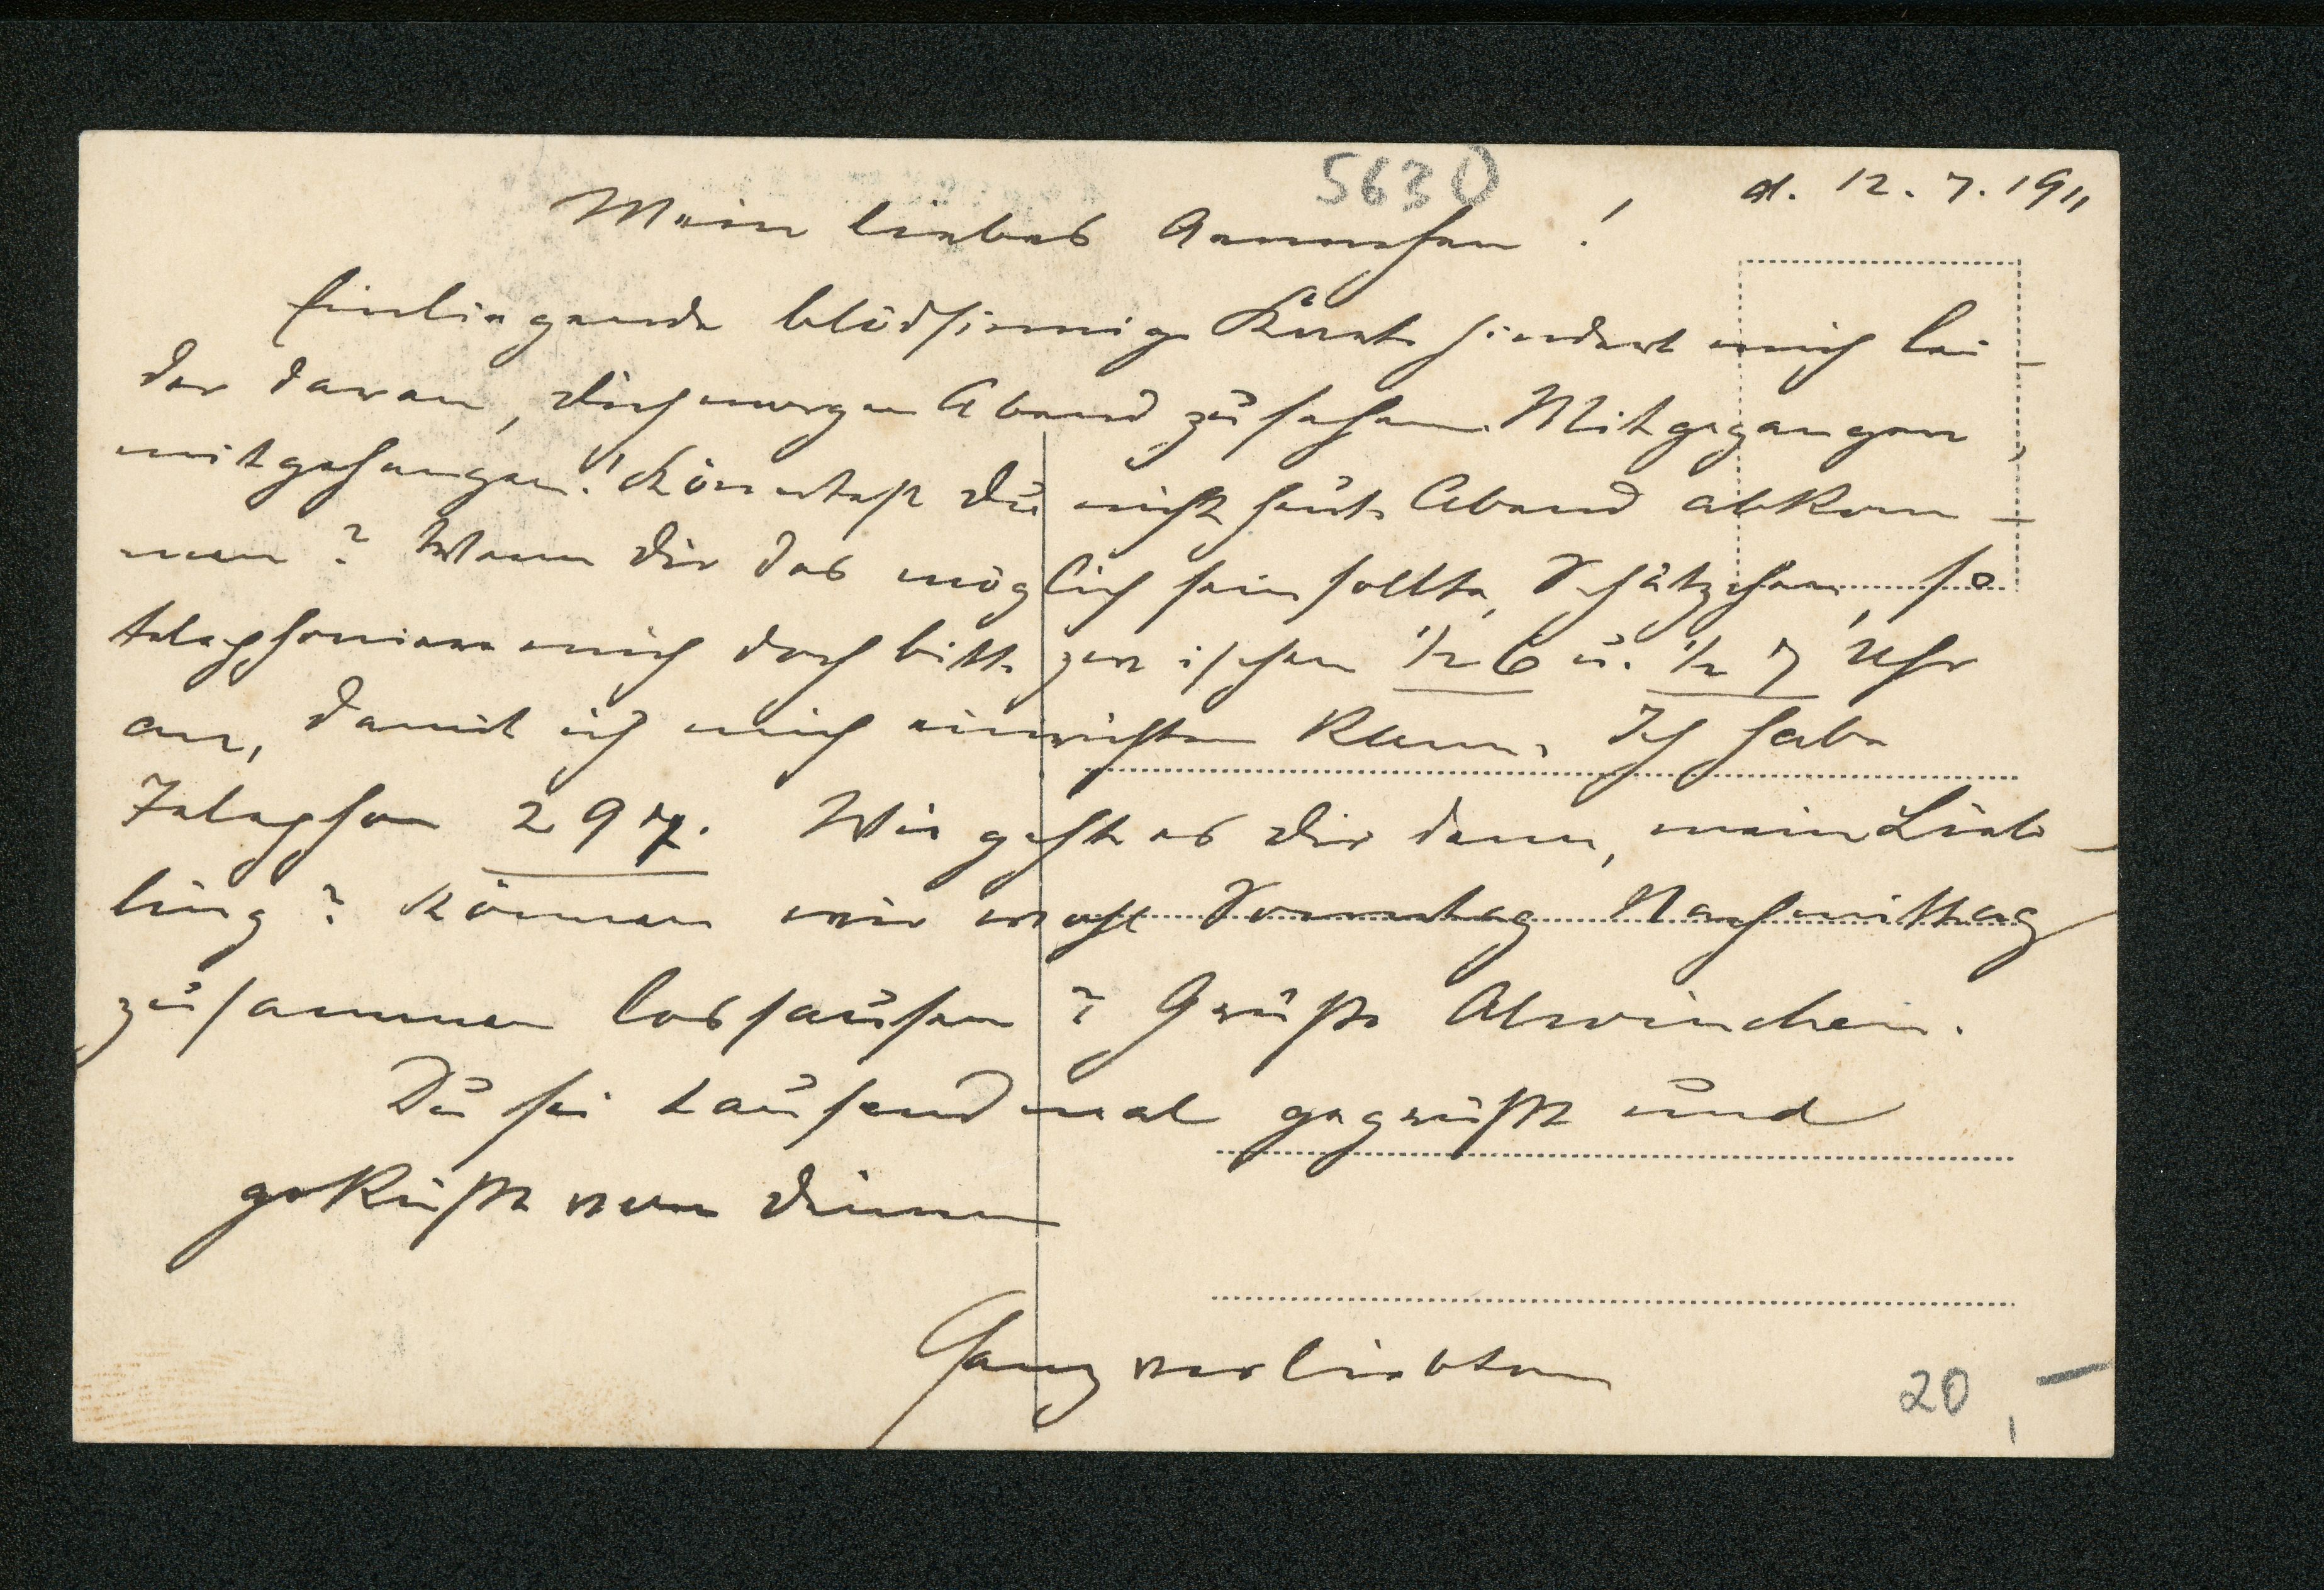 5630
d. 12.7.1911
Mein liebes Aennchen!
Einliegende blödsinnige Karte hindert mich lei-
der daran, Dich morgen Abend zu sehen. Mitgegangen,
mitgehangen! Könntest Du nicht heute Abend abkom-
men? Wenn Dir das möglich sein sollte, Schätzchen, so
telephoniere mich doch bitte zwischen 1/2 6 u. 1/2 7 Uhr
an, damit ich mich einrichten kann. Ich habe
Telephon 297. Wie geht es Dir denn, mein Lieb-
ling? Können wir wohl Sonntag Nachmittag
zusammen lossausen? Grüße Alwinchen.
Du sei tausendmal gegrüßt und
geküßt von Deinem
Ganz verliebten
20,-